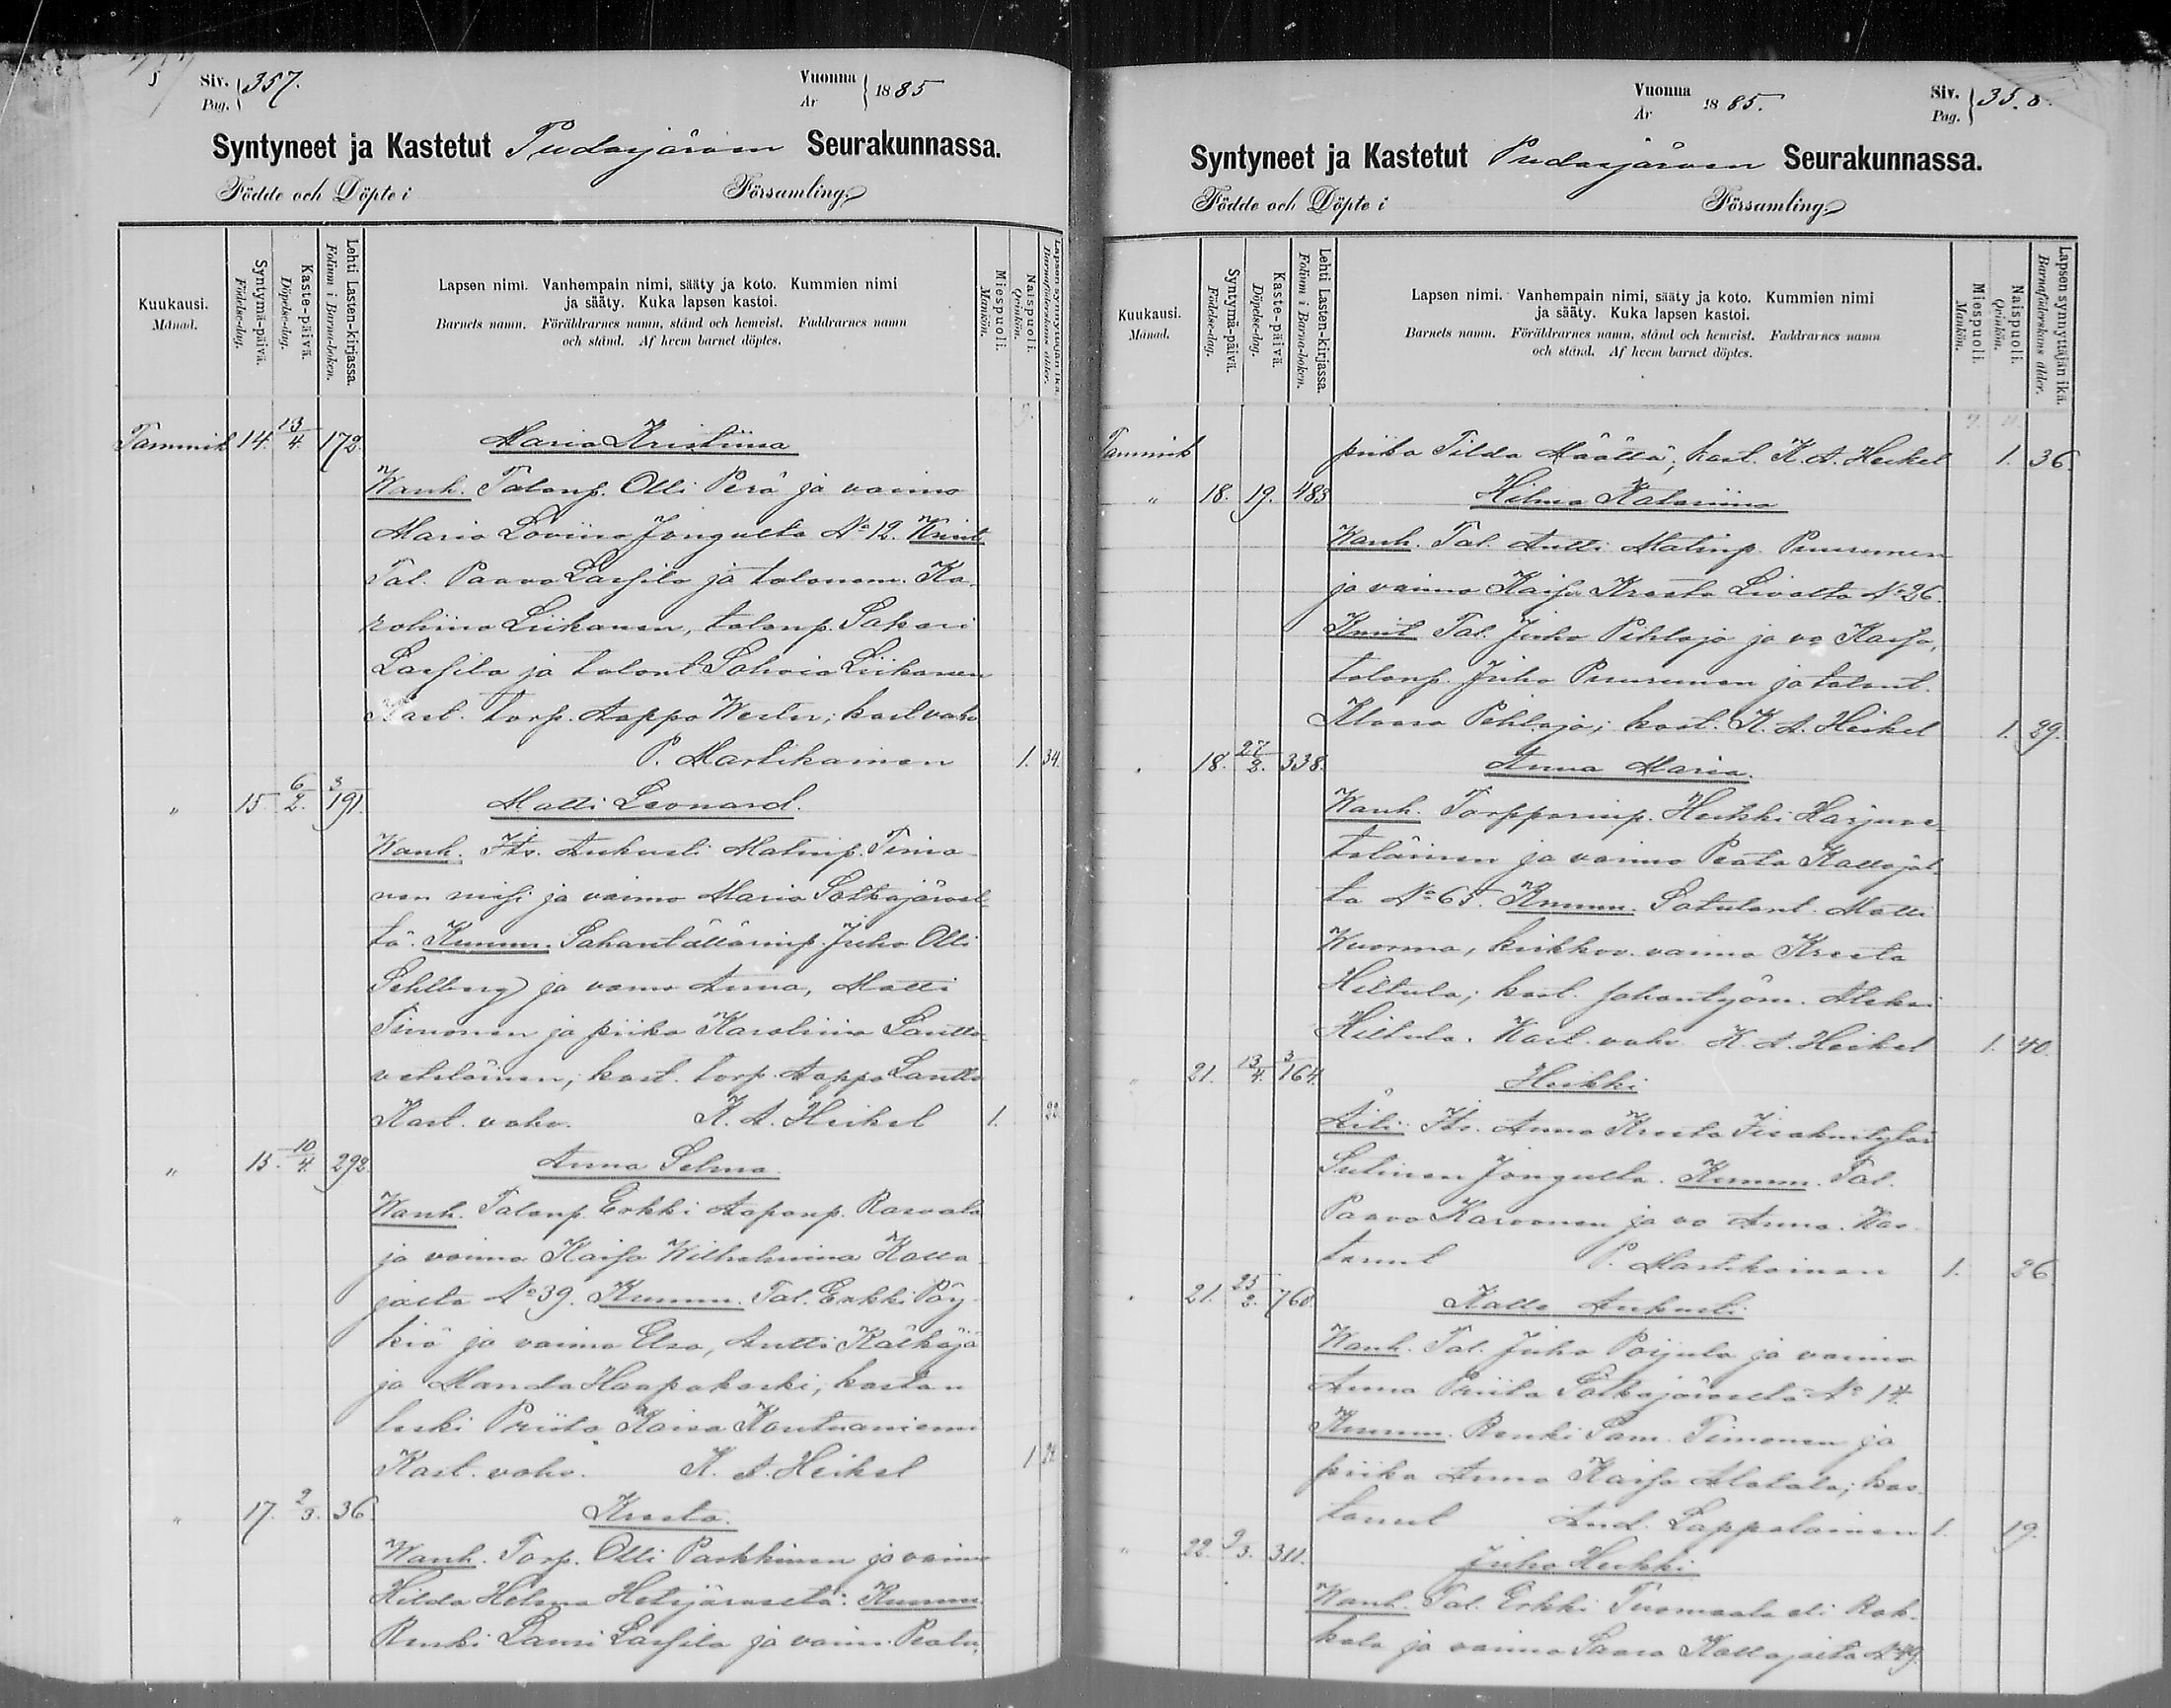 Siv. 357.
Pag.
Vuonna 1885
År
Syntyneet ja Kastetut Pudasjärven Seurakunnassa.
Födde och Döpte i Församling.
Kuukausi.
Månad.
Syntymä-päivä.
Födelse-dag.
Kaste-päivä.
Döpelse-dag.
Lehti Lasten-kirjassa.
Folium i Barna-boken.
Lapsen nimi. Vanhempain nimi, sääty ja koto. Kummien nimi
ja sääty. Kuka lapsen kastoi.
Barnets namn. Föräldrarnes namn, stånd och hemvist. Faddrarnes namn
och stånd. Af hvem barnet döptes.
Miespuoli.
Mankön.
Naispuoli.
Qvinkön.
Lapsen synnyttäjän ikä.
Barnaföderskans ålder.
Tammik 14. 13/4. 172. Maria Kristiina
Wanh. Talonp. Olli Perä ja vaimo
Maria Loviina Jongulta No 12. Kmit
Tal. Paavo Lassila ja talonem. Ka-
roliina Liikanen, talonp. Sakari
Lassila ja talont. Sohvia Liikanen
Kast. torp. Aappo Wester; kast vahv
P. Martikainen 1. 34.
" 15 6/2. 3/191. Matti Leonard.
Wanh. Its. Aukusti Matinp. Timo-
nen niksi ja vaimo Maria Sotkajärvel-
tä. Kumm. Sahantällärinp. Juho Olli
Sehlberg ja vaimo Anna, Matti
Timonen ja piika Karoliina Lantto-
veteläinen; kast. torp. Aappo Lantto
Kast. vahv. K. A. Heikel 1. 22.
" 15. 10/4. 292. Anna Selma.
Wanh. Talonp. Erkki Aaponp. Rasvala
ja vaimo Kaisa Wilhelmina Kollo-
jalta No 39. Kumm. Tal. Erkki Pöy-
kiö ja vaimo Elsa, Antti Kälkäjä
ja Manda Haapakoski, kastan
leski Priita Kaisa Kontuaniemi
Kast. vahv. K. A. Heikel 1
" 17. 2/3. 36 Kreeta.
Wanh. Torp. Olli Parkkinen ja vaimo
Hilda Helena Hetejärveltä. Kumm.
Renki Lauri Lassila ja vaimo Peata,
Vuonna 1885.
År
Siv. 358.
Pag.
Syntyneet ja Kastetut Pudasjärven Seurakunnassa.
Födde och Döpte i Församling.
Kuukausi.
Månad.
Syntymä-päivä.
Födelse-dag.
Kaste-päivä.
Döpelse-dag.
Lehti Lasten-kirjassa.
Folium i Barna-boken.
Lapsen nimi. Vanhempain nimi, sääty ja koto. Kummien nimi
ja sääty. Kuka lapsen kastoi.
Barnets namn. Föräldrarnes namn, stånd och hemvist. Faddrarnes namn
och stånd. Af hvem barnet döptes.
Miespuoli.
Mankön.
Naispuoli.
Qvinkön.
Lapsen synnyttäjän ikä.
Barnaföderskans ålder.
Tammik piika Tilda Määttä; kast. K. A. Heikel 1. 36
" 18. 19. 483 Hilma Katariina
Wanh. Tal. Antti Matinp. Puurunen
ja vaimo Kaisa Kreeta Livolta No 26.
Kmit Tal. Juho Pihlaja ja vo Kaisa,
talonp. Juho Puurunen ja talont.
Klaara Pihlaja; kast. K. A. Heikel 1. 29.
" 18. 27/2. 338. Anna Maria.
Wanh. Torpparinp. Heikki Harjuve-
teläinen ja vaimo Peata Kollojal-
ta No 65. Kumm. Satulant. Matti
Wuorma, kirkkov. vaimo Kreeta
Hiltula; kast. sahantyöm. Aleksi
Hiltula. Kast. vahv. K. A. Heikel 1. 40.
" 21. 13/4. 3/164. Heikki
Äiti: Its. Anna Kreeta Iisakintytär
Sutinen Jongulta. Kumm. Tal.
Paavo Karvonen ja vo Anna. Kas-
tanut P. Martikainen 1. 26
" 21. 25/2. 760. Kalle Aukusti.
Wanh. Tal. Juho Poijula ja vaimo
Anna Priita Sotkajärveltä No 14.
Kumm. Renki Sam. Timonen ja
piika Anna Kaisa Alatalo; kas-
tanut And. Lappalainen 1. 19.
" 22. 9/3. 311. Juho Heikki.
Wanh. Tal. Erkki Tuomaala eli Rok-
kala ja vaimo Saara Kollojalta No 49.